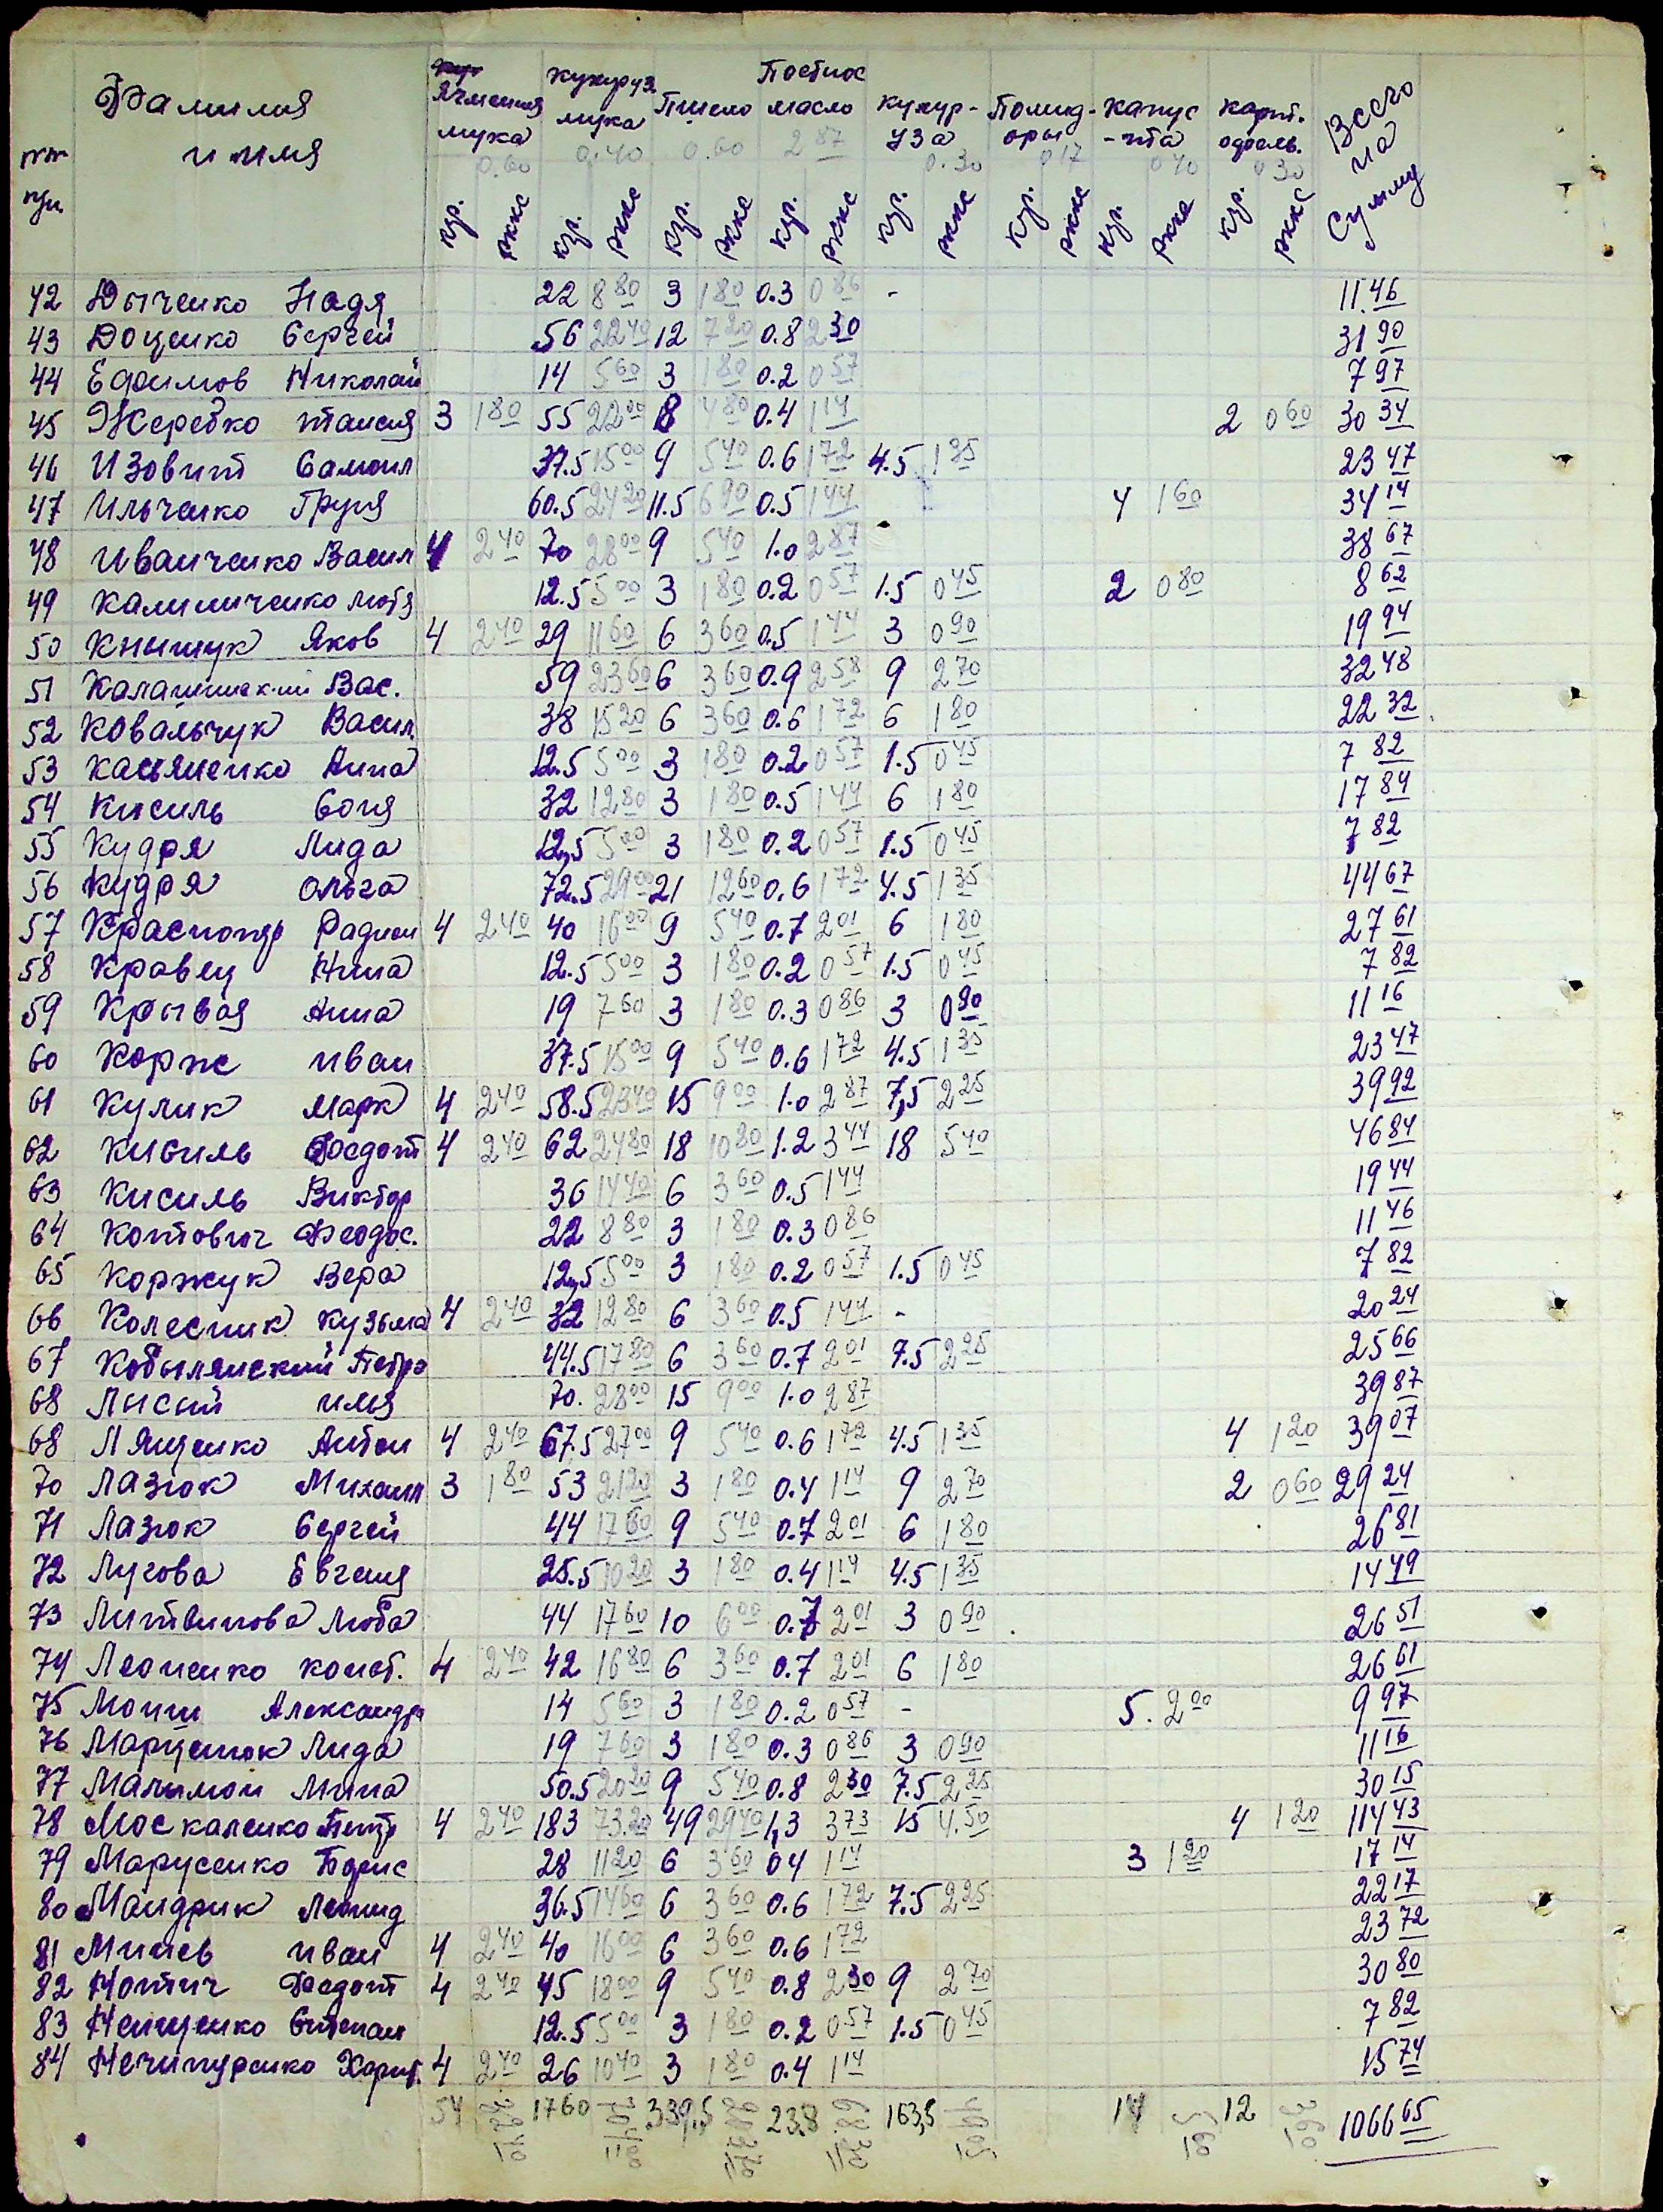 Фамилия и имя
Ячменная мука 0.60
кукуруз. мука 0.40
Пшено 0.60
Постное масло 2 87
кукур-уза 0.30
Помид-оры 0 17
капус-та 0 40
карт. 0 30
Всего на сумму
42 Дыченко Надя 22 8 80 3 1 80 0.3 0 86 - 11.46
43 Доценко Сергей 56 22 40 12 7 20 0.8 2 30 31 90
44 Ефимов Николай 14 5 60 3 1 80 0.2 0 57 7 97
45 Жеребко таисия 3 1 80 55 22 00 8 4 80 0.4 1 14 2 0 60 30 34
46 Изовит Самоил 37.5 15 00 9 5 40 0.6 1 72 4.5 1 35 23 47
47 Ильченко Груня 60.5 24 20 11.5 6 90 0.5 1 44 4 1 60 34 14
48 Иванченко Васил 4 2 40 70 28 00 9 5 40 1.0 2 87 38 67
49 Калиниченко мотя 12.5 5 00 3 1 80 0.2 0 57 1.5 0 45 2 0 80 8 62
50 Кнышук Яков 4 2 40 29 11 60 6 3 60 0.5 1 44 3 0 90 19 94
51 Калашинский Вас. 59 23 60 6 3 60 0.9 2 58 9 2 70 32 48
52 Ковальчук Васил. 38 15 20 6 3 60 0.6 1 72 6 1 80 22 32
53 Касьяненко Анна 12.5 5 00 3 1 80 0.2 0 57 1.5 0 45 7 82
54 Кисиль Соня 32 12 80 3 1 80 0.5 1 44 6 1 80 17 84
55 Кудря Лида 12,5 5 00 3 1 80 0.2 0 57 1.5 0 45 7 82
56 Кудря Ольга 72.5 29 00 21 12 60 0.6 1 72 4.5 1 35 44 67
57 Радион 4 2 40 40 16 00 9 5 40 0.7 2 01 6 1 80 27 61
58 Кравец Нина 12.5 5 00 3 1 80 0.2 0 57 1.5 0 45 7 82
59 Крывая Анна 19 7 60 3 1 80 0.3 0 86 3 0 90 11 16
60 Корж иван 37.5 15 00 9 5 40 0.6 1 72 4.5 1 35 23 47
61 Кулик марк 4 2 40 58.5 23 40 15 9 00 1.0 2 87 7,5 2 25 39 92
62 Кисиль Федот 4 2 40 62 24 80 18 10 80 1.2 3 44 18 5 40 46 84
63 Кисиль Виктор 36 14 40 6 3 60 0.5 1 44 19 44
64 Котович Феодос. 22 8 80 3 1 80 0.3 0 86 11 46
65 Коржук Вера 12,5 5 00 3 1 80 0.2 0 57 1.5 0 45 7 82
66 Колесник Кузьма 4 2 40 32 12 80 6 3 60 0.5 1 44 - 20 24
67 Кобылянский Петро 44.5 17 80 6 3 60 0.7 2 01 7.5 2 25 25 66
68 Лысый илья 70. 28 00 15 9 00 1.0 2 87 39 87
68 Лященко Антон 4 2 40 67.5 27 00 9 5 40 0.6 1 72 4.5 1 35 4 1 20 39 07
70 Лазюк Михаил 3 1 80 53 21 20 3 1 80 0.4 1 14 9 2 70 2 0 60 29 24
71 Лазюк Сергей 44 17 60 9 5 40 0.7 2 01 6 1 80 26 81
72 Лугова Евгения 25.5 10 20 3 1 80 0.4 1 14 4.5 1 35 14 49
73 Литвинова Люба 44 17 60 10 6 00 0.7 2 01 3 0 90 26 51
74 Леоненко конст. 4 2 40 42 16 80 6 3 60 0.7 2 01 6 1 80 26 61
75 Александра 14 5 60 3 1 80 0.2 0 57 - 5. 2 00 9 97
76 Марценюк Лида 19 7 60 3 1 80 0.3 0 86 3 0 90 11 16
77 Малимон Мина 50.5 20 20 9 5 40 0.8 2 30 7.5 2 25 30 15
78 Москаленко Петр 4 2 40 183 73.20 49 29 40 1,3 3 73 15 4.50 4 1 20 114 43
79 Марусенко Борис 28 11 20 6 3 60 0 4 1 14 3 1 20 17 14
80 Мандрик Леонид 36.5 14 60 6 3 60 0.6 1 72 7.5 2 25 22 17
81 Минев иван 4 2 40 40 16 00 6 3 60 0.6 1 72 23 72
82 Нотич Федот 4 2 40 45 18 00 9 5 40 0.8 2 30 9 2 70 30 80
83 Нещенко Степан 12.5 5 00 3 1 80 0.2 0 57 1.5 0 45 7 82
84 Нечипуренко Харит. 4 2 40 26 10 40 3 1 80 0.4 1 14 15 74
54 32 40 1760 339.5 23,8 163,5 49 05 14 5 60 12 3 60 1066 65